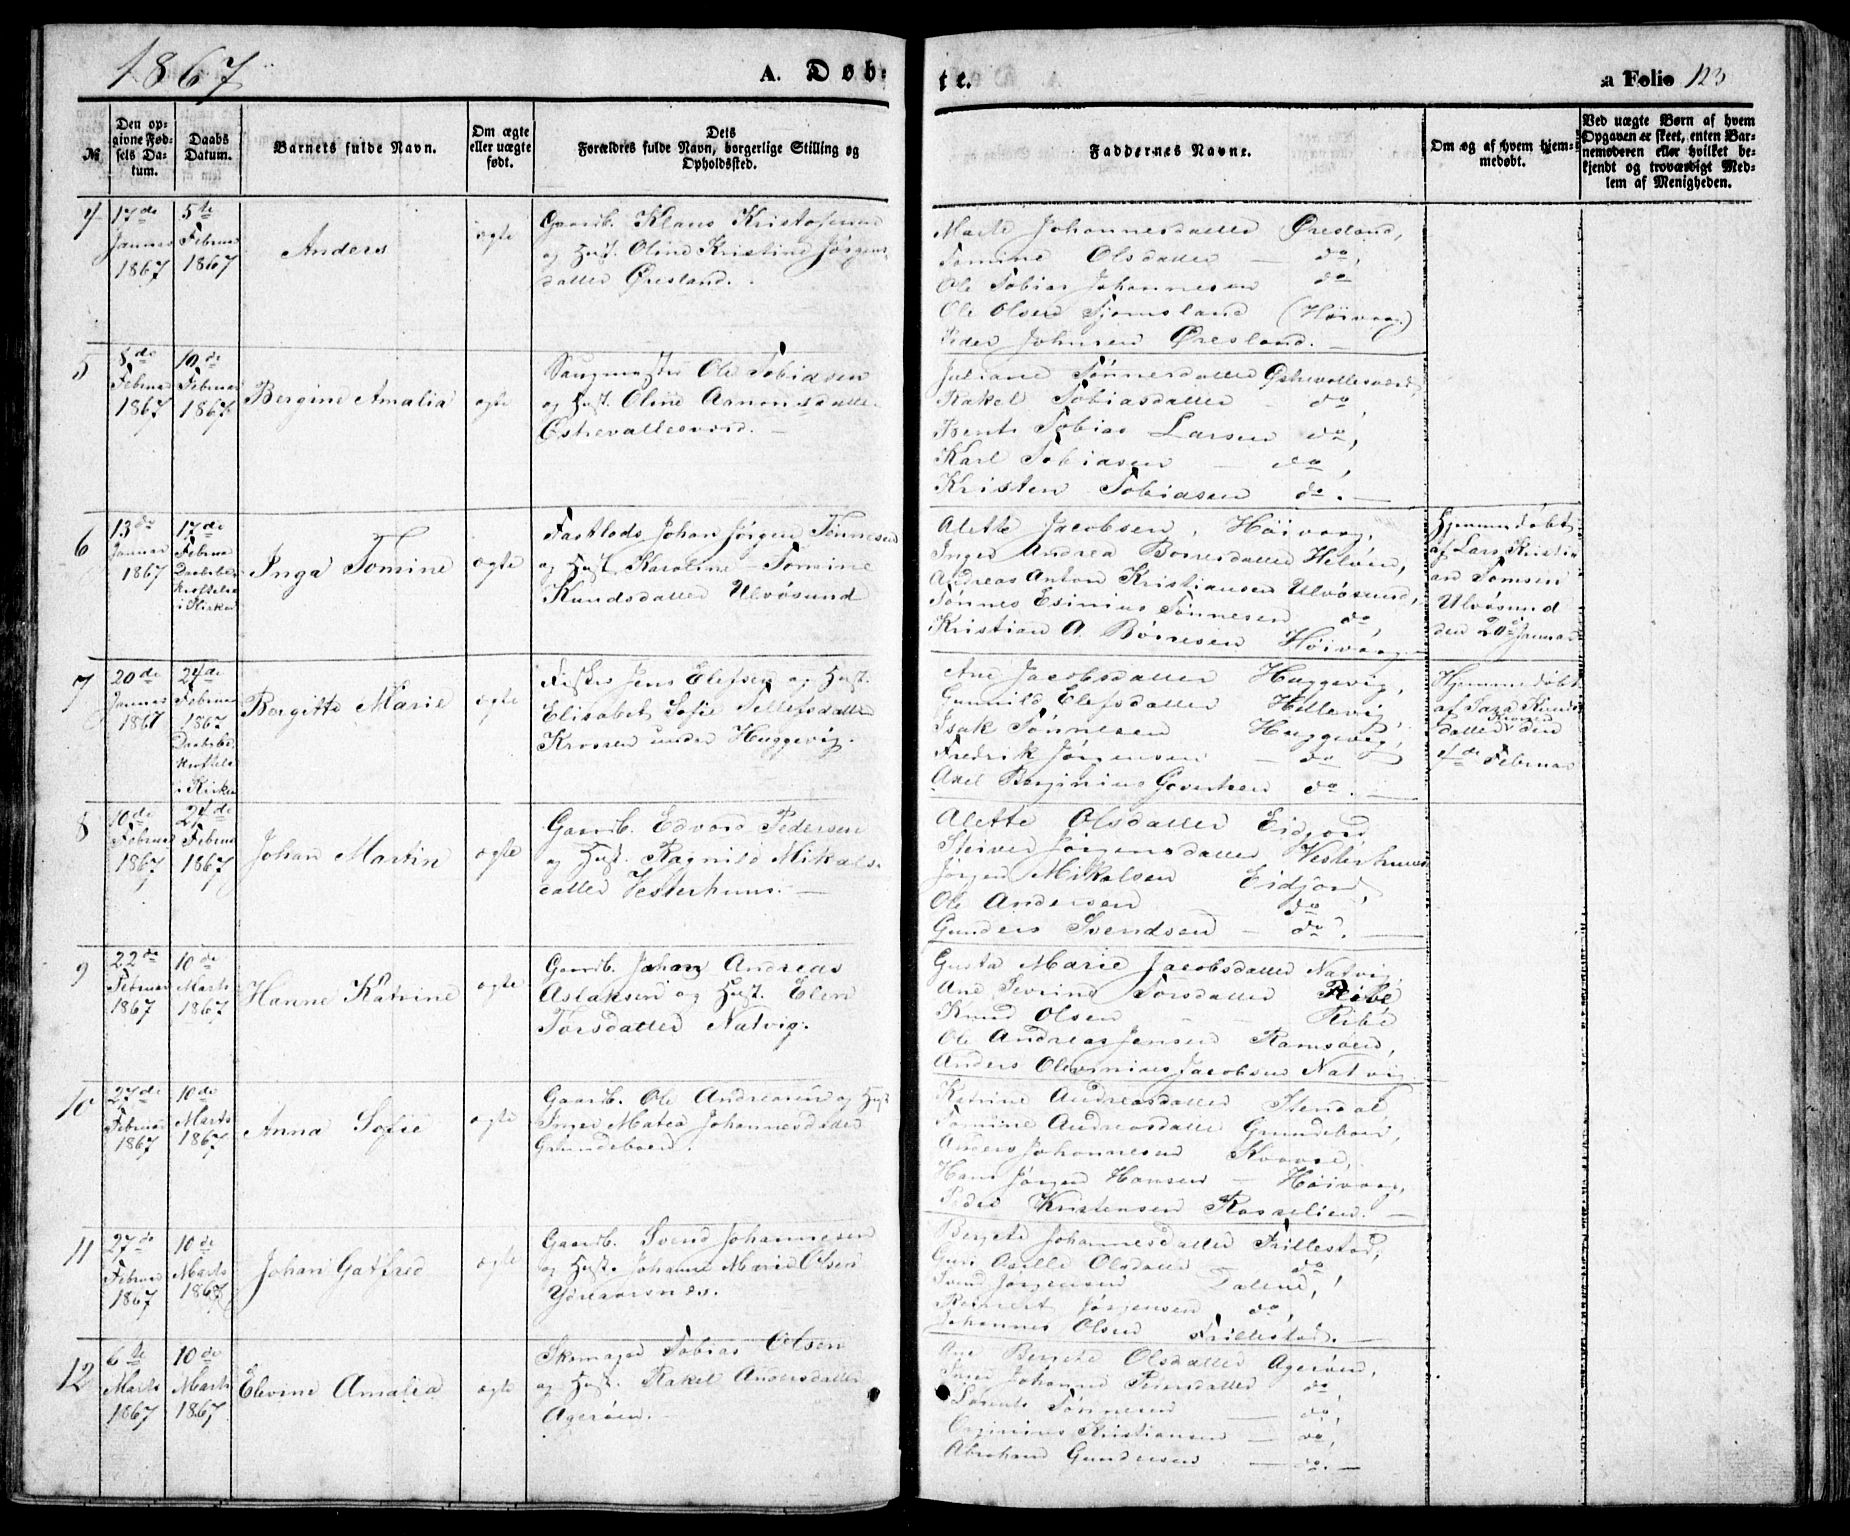 1867
A. Døbte.
a Folio 123
№
Den opgivne Fødsels Datum.
Daabs Datum.
Barnets fulde Navn.
Om ægte eller uægte født.
Dets Forældres fulde Navn, borgerlige Stilling og Opholdssted.
Faddernes Navne.
Om og af hvem hjemmedøbt.
Ved uægte Børn af hvem Opgaven er skeet, enten Barnemoderen eller hvilket bekjendt og troværdigt Medlem af Menigheden.
4
17de
Januar
1867
5te
Februar
1867
Anders
ægte
Gaardb. Klaus Kristofersen
og Hust. Oline Kristine Jørgens
datter Øresland.
Marte Johannesdatter Øresland,
Tomine Olsdatter — do,
Ole Tobias Johannesen do
Ole Olsen Tjomsland (Høivaag)
Peder Johnsen Øresland. —
5
8de
Februar
1867
10de
Februar
1867
Bergine Amalia
ægte
Ole Tobiasen
og Hust. Oline Aanonsdatter
Østrevallesverd. —
Juliane Tønnesdatter Østrevallesverd,
Rakel Tobiasdatter — do,
Bent Tobias Larsen do,
Karl Tobiasen — do,
Kristen Tobiasen do. —
6
13de
Januar
1867
17de
Februar
Daabsbe
kræftelse
i Kirken
Inga Tomine
ægte
Johan Jørgen Tønnesen
og Hust. Karoline Tomine
Knudsdatter Ulvøsund
Alette Jacobsen, Høivaag,
Inger Andrea Børresdatter Helvön,
Andreas Anton Kristiansen Ulvøsund,
Tønnes Esinius Tønnesen do,
Kristian A. Børresen Høivaag.
Hjemmedøbt
af Lars Kristi
an Tomsen
Ulvøsund
den 20de Januar
7
20de
Januar
1867
24de
Februar
1867
Daabsbe
kræftelse
i Kirken
Bergitte Marie
ægte
Fisker Jens Elefsen og Hust.
Elisabet Sofie Tellefsdatter
Krossen under Huggevig.
Ane Jacobsdatter Huggevig,
Gunnild Elefsdatter Hellevig,
Isak Tønnesen Huggevig,
Fredrik Jørgensen — do
Axel Berginius do. —
Hjemmedøbt
af Knuds
datter Krossen den
4de Februar
8
10de
Februar
1867
24de
Februar
1867
Johan Martin
ægte
Gaardb. Edvard Pedersen
og Hust. Ragnild Mikals
datter Vesterhuus. —
Alette Olsdatter Eidjord,
Jørgensdatter Vesterhuus
Jørgen Mikalsen Eidjord,
Ole Andersen do
Gunders Svendsen — do. —
9
22de
Februar
1867
10de
Marts
1867
Hanne Katrine
ægte
Gaardb. Johan Andreas
Aslaksen og Hust. Elen
Torsdatter Natvig.
Gusta Marie Jacobsdatter Natvig,
Ane Sevrine Torsdatter Ribe
Knud Olsen — — Ribe
Ole Andreas Jensen Ramsøen,
Anders Olevinius Jacobsen Natvig
10
27de
Februar
1867
10de
Marts
1867
Anna Sofie
ægte
Gaardb. Ole Andreasen og Hust
Inger Matea Johannesdatter
Grundeboen.
Katrine Andreasdatter Stendal,
Tomine Andreasdatter Grundeboen,
Anders Johannesen Kvaase,
Hans Jørgen Hansen — Høivaag,
Peder Kristensen Rosselien. —
11
27de
Februar
1867
10de
Marts
1867
Johan Gatfred
ægte
Gaardb. Svend Johannesen
og Hust. Johanne Marie Olsen
Berjete Johannesdatter Frillestad,
Guri Olsdatter do
Svend Jørgensen Dalene,
Reinert Jørgensen do,
Johannes Olsen Frillestad. —
12
6te
Marts
1867
10de
Marts
1867
Elevine Amalia
ægte
Skomager Tobias Olsen
og Hust. Rakel Andersdatter
Agerøen. —
Ane Berjete Olsdatter Agerøen,
Inger Johanne Peersdatter do,
Sørens Tønnesen — do,
Kristiansen — do,
Abraham Gundersen — do. —